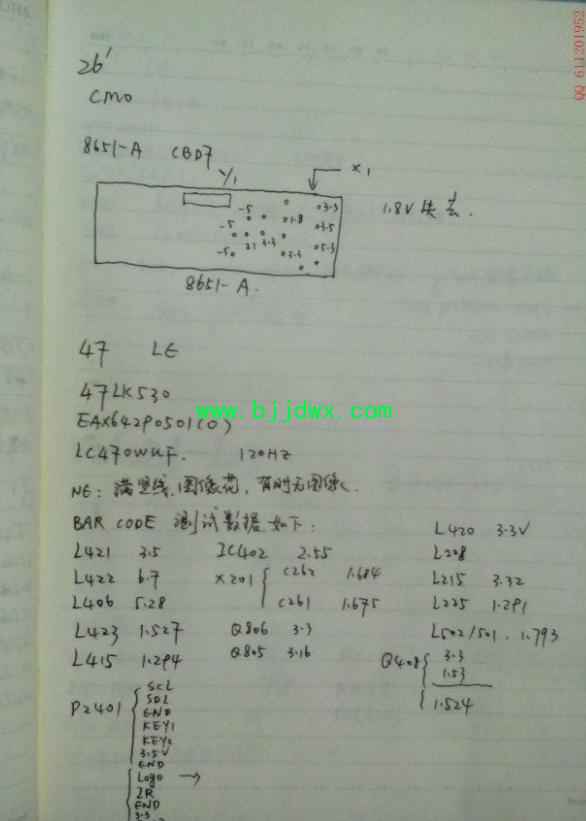 QQ 611201952
26'
CMO
8651-A CBD7
Y1 X1
-5 1.8 3.3
-5 3.5 1.8V 失去.
21 3.3 5.3
-5 3.3
8651-A.
47 LE
47LK530
www.bjjdwx.com
EAX64290501(0)
LC470WUF. 120HZ
NE: 满竖线,图像花,有时无图像.
BAR CODE 测试数据如下:
L420 3.3V
L421 3.5 IC402 2.55 L208
L422 6.7 X201 { C262 1.684 L215 3.32
L406 5.28 C261 1.675 L225 1.291
L423 1.527 Q806 3.3 L502/501. 1.793
L415 1.294 Q805 3.16 Q408 { 3.3
1.53
1.524
P2401 { SCL
SDL
GND
KEY1
KEY2
3.5V
GND
Logo →
IR
GND
3.3